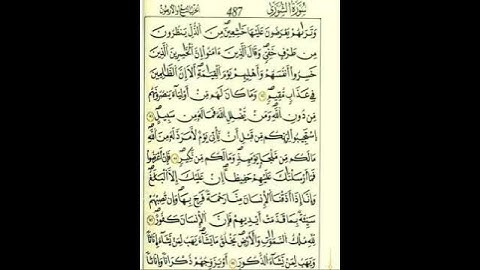 سُورَةُ الشُّورَىٰ 487 الجزء الخامس والعشرون
وَتَرَىٰهُمْ يُعْرَضُونَ عَلَيْهَا خَٰشِعِينَ مِنَ ٱلذُّلِّ يَنظُرُونَ
مِن طَرْفٍ خَفِىٍّ ۗ وَقَالَ ٱلَّذِينَ ءَامَنُوٓا۟ إِنَّ ٱلْخَٰسِرِينَ ٱلَّذِينَ
خَسِرُوٓا۟ أَنفُسَهُمْ وَأَهْلِيهِمْ يَوْمَ ٱلْقِيَٰمَةِ ۗ أَلَآ إِنَّ ٱلظَّٰلِمِينَ
فِى عَذَابٍ مُّقِيمٍ ٤٥ وَمَا كَانَ لَهُم مِّنْ أَوْلِيَآءَ يَنصُرُونَهُم
مِّن دُونِ ٱللَّهِ ۗ وَمَن يُضْلِلِ ٱللَّهُ فَمَا لَهُۥ مِن سَبِيلٍ ٤٦
ٱسْتَجِيبُوا۟ لِرَبِّكُم مِّن قَبْلِ أَن يَأْتِىَ يَوْمٌ لَّا مَرَدَّ لَهُۥ مِنَ ٱللَّهِ ۚ
مَا لَكُم مِّن مَّلْجَإٍ يَوْمَئِذٍ وَمَا لَكُم مِّن نَّكِيرٍ ٤٧ فَإِنْ أَعْرَضُوا۟
فَمَآ أَرْسَلْنَٰكَ عَلَيْهِمْ حَفِيظًا ۖ إِنْ عَلَيْكَ إِلَّا ٱلْبَلَٰغُ ۗ
وَإِنَّآ إِذَآ أَذَقْنَا ٱلْإِنسَٰنَ مِنَّا رَحْمَةً فَرِحَ بِهَا ۖ وَإِن تُصِبْهُمْ
سَيِّئَةٌۢ بِمَا قَدَّمَتْ أَيْدِيهِمْ فَإِنَّ ٱلْإِنسَٰنَ كَفُورٌ ٤٨
لِّلَّهِ مُلْكُ ٱلسَّمَٰوَٰتِ وَٱلْأَرْضِ ۚ يَخْلُقُ مَا يَشَآءُ ۚ يَهَبُ لِمَن يَشَآءُ إِنَٰثًا
وَيَهَبُ لِمَن يَشَآءُ ٱلذُّكُورَ ٤٩ أَوْ يُزَوِّجُهُمْ ذُكْرَانًا وَإِنَٰثًا